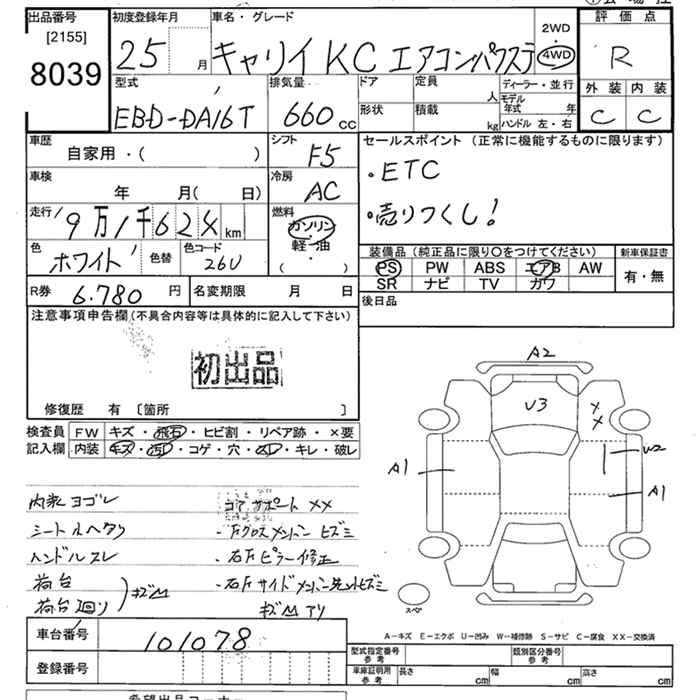 出品番号
[2155]
8039
初度登録年月
25 月
車名・グレード
キャリイ KC エアコンパワステ
2WD
4WD
評価点
R
外装 内装
C C
型式
EBD-DA16T
排気量
660 cc
ドア
形状
定員
人
積載
kg
ディーラー・並行
モデル年式 年
ハンドル 左・右
車歴
自家用・( )
シフト
F5
車検
年 月( 日)
冷房
AC
走行
9万1千624 km
燃料
ガソリン
軽・油
( )
色
ホワイト
色替
色コード
26U
セールスポイント (正常に機能するものに限ります)
・ETC
・売りつくし!
装備品(純正品に限り○をつけてください)
PS PW ABS エアB AW
SR ナビ TV カワ
新車保証書
有・無
R券 6.780 円
名変期限 月 日
後日品
注意事項申告欄(不具合内容等は具体的に記入して下さい)
初出品
修復歴 有 〔箇所 〕
検査員記入欄
FW キズ・飛石・ヒビ割・リペア跡・×要
内装 キズ・汚レ・コゲ・穴・スレ・キレ・破レ
内装ヨゴレ
シートルヘタリ
ハンドルスレ
荷台
荷台廻り
キズM
コアサポート XX
・Fクロスメンバー ヒズミ
・右Fピラー修正
・右Fサイドメンバー先ッポヒズミ
キズM アリ
A2
U3
X
X
U2
A1
A1
スペア
A-キズ E-エクボ U-凹み W-補修跡 S-サビ C-腐食 XX-交換済
車台番号
101078
登録番号
型式指定番号 参考
類別区分番号 参考
車庫証明用 参考
長さ cm
幅 cm
高さ cm